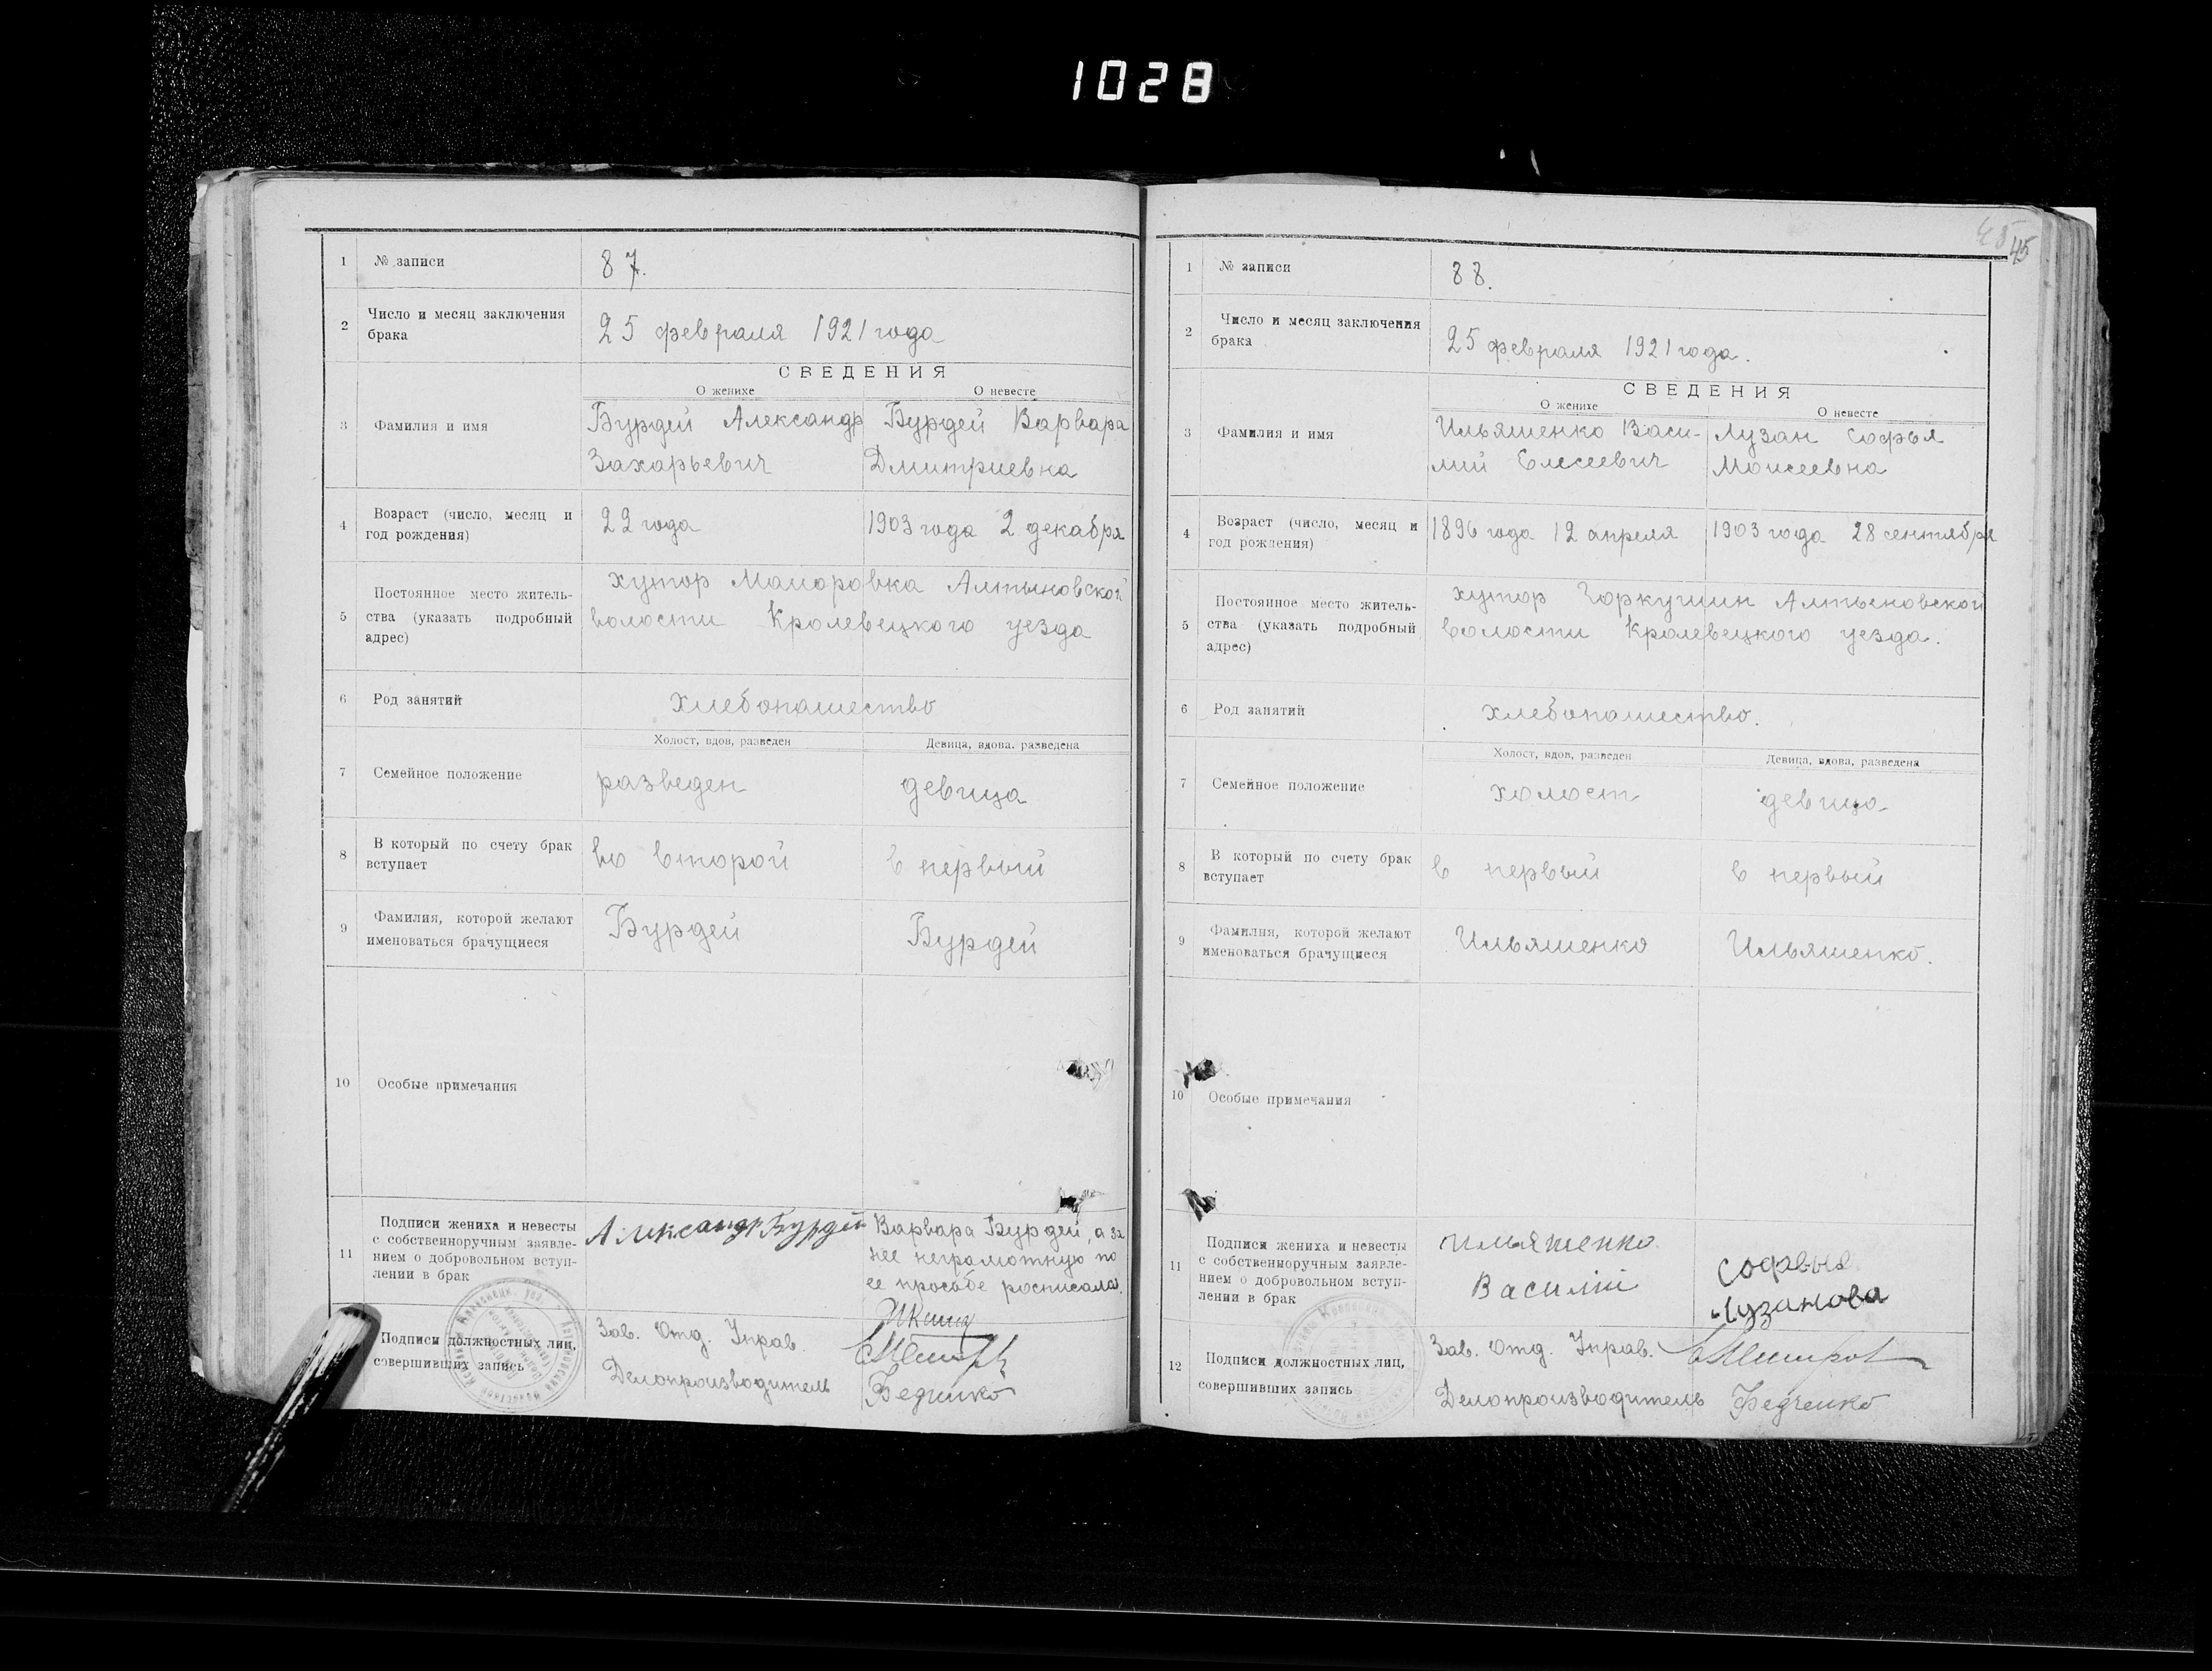 1028
45
1 № записи 87.
2 Число и месяц заключения
брака
25 февраля 1921 года
СВЕДЕНИЯ
О женихе О невесте
3 Фамилия и имя
Бурдей Александр Бурдей Варвара
Захарьевич Дмитриевна
4 Возраст (число, месяц и
год рождения)
22 года 1903 года 2 декабря
5 Постоянное место житель-
ства (указать подробный
адрес)
хутор Маиоровка Алтыновской
волости Кролевецкого уезда
6 Род занятий хлебопашество
Холост, вдов, разведен Девица, вдова, разведена
7 Семейное положение разведен девица
8 В который по счету брак
вступает
во второй в первый
9 Фамилия, которой желают
именоваться брачущиеся
Бурдей Бурдей
10 Особые примечания
11 Подписи жениха и невесты
с собственноручным заявле-
нием о добровольном вступ-
лении в брак
Александр Бурдей
Варвара Бурдей, а за
нее неграмотную по
ее прозбе росписалась
Подписи должностных лиц,
совершивших запись
Зав. Отд. Управ.
Делопроизводитель Бедченко
1 № записи 88.
2 Число и месяц заключения
брака
25 февраля 1921 года.
СВЕДЕНИЯ
О женихе О невесте
3 Фамилия и имя
Ильяшенко Васи- Лузан Софья
лий Елесеевич Моисеевна
4 Возраст (число, месяц и
год рождения)
1896 года 12 апреля 1903 года 28 сентября
5 Постоянное место житель-
ства (указать подробный
адрес)
хутор Алтыновской
волости Кролевецкого уезда.
6 Род занятий хлебопашество.
Холост, вдов, разведен Девица, вдова, разведена
7 Семейное положение холост девица
8 В который по счету брак
вступает
в первый в первый
9 Фамилия, которой желают
именоваться брачущиеся
Ильяшенко Ильяшенко.
10 Особые примечания
11 Подписи жениха и невесты
с собственноручным заявле-
нием о добровольном вступ-
лении в брак
Ильяшенко
Василий
Софья
Лузанова
12 Подписи должностных лиц,
совершивших запись
Зав. Отд. Управ.
Делопроизводитель Бедченко